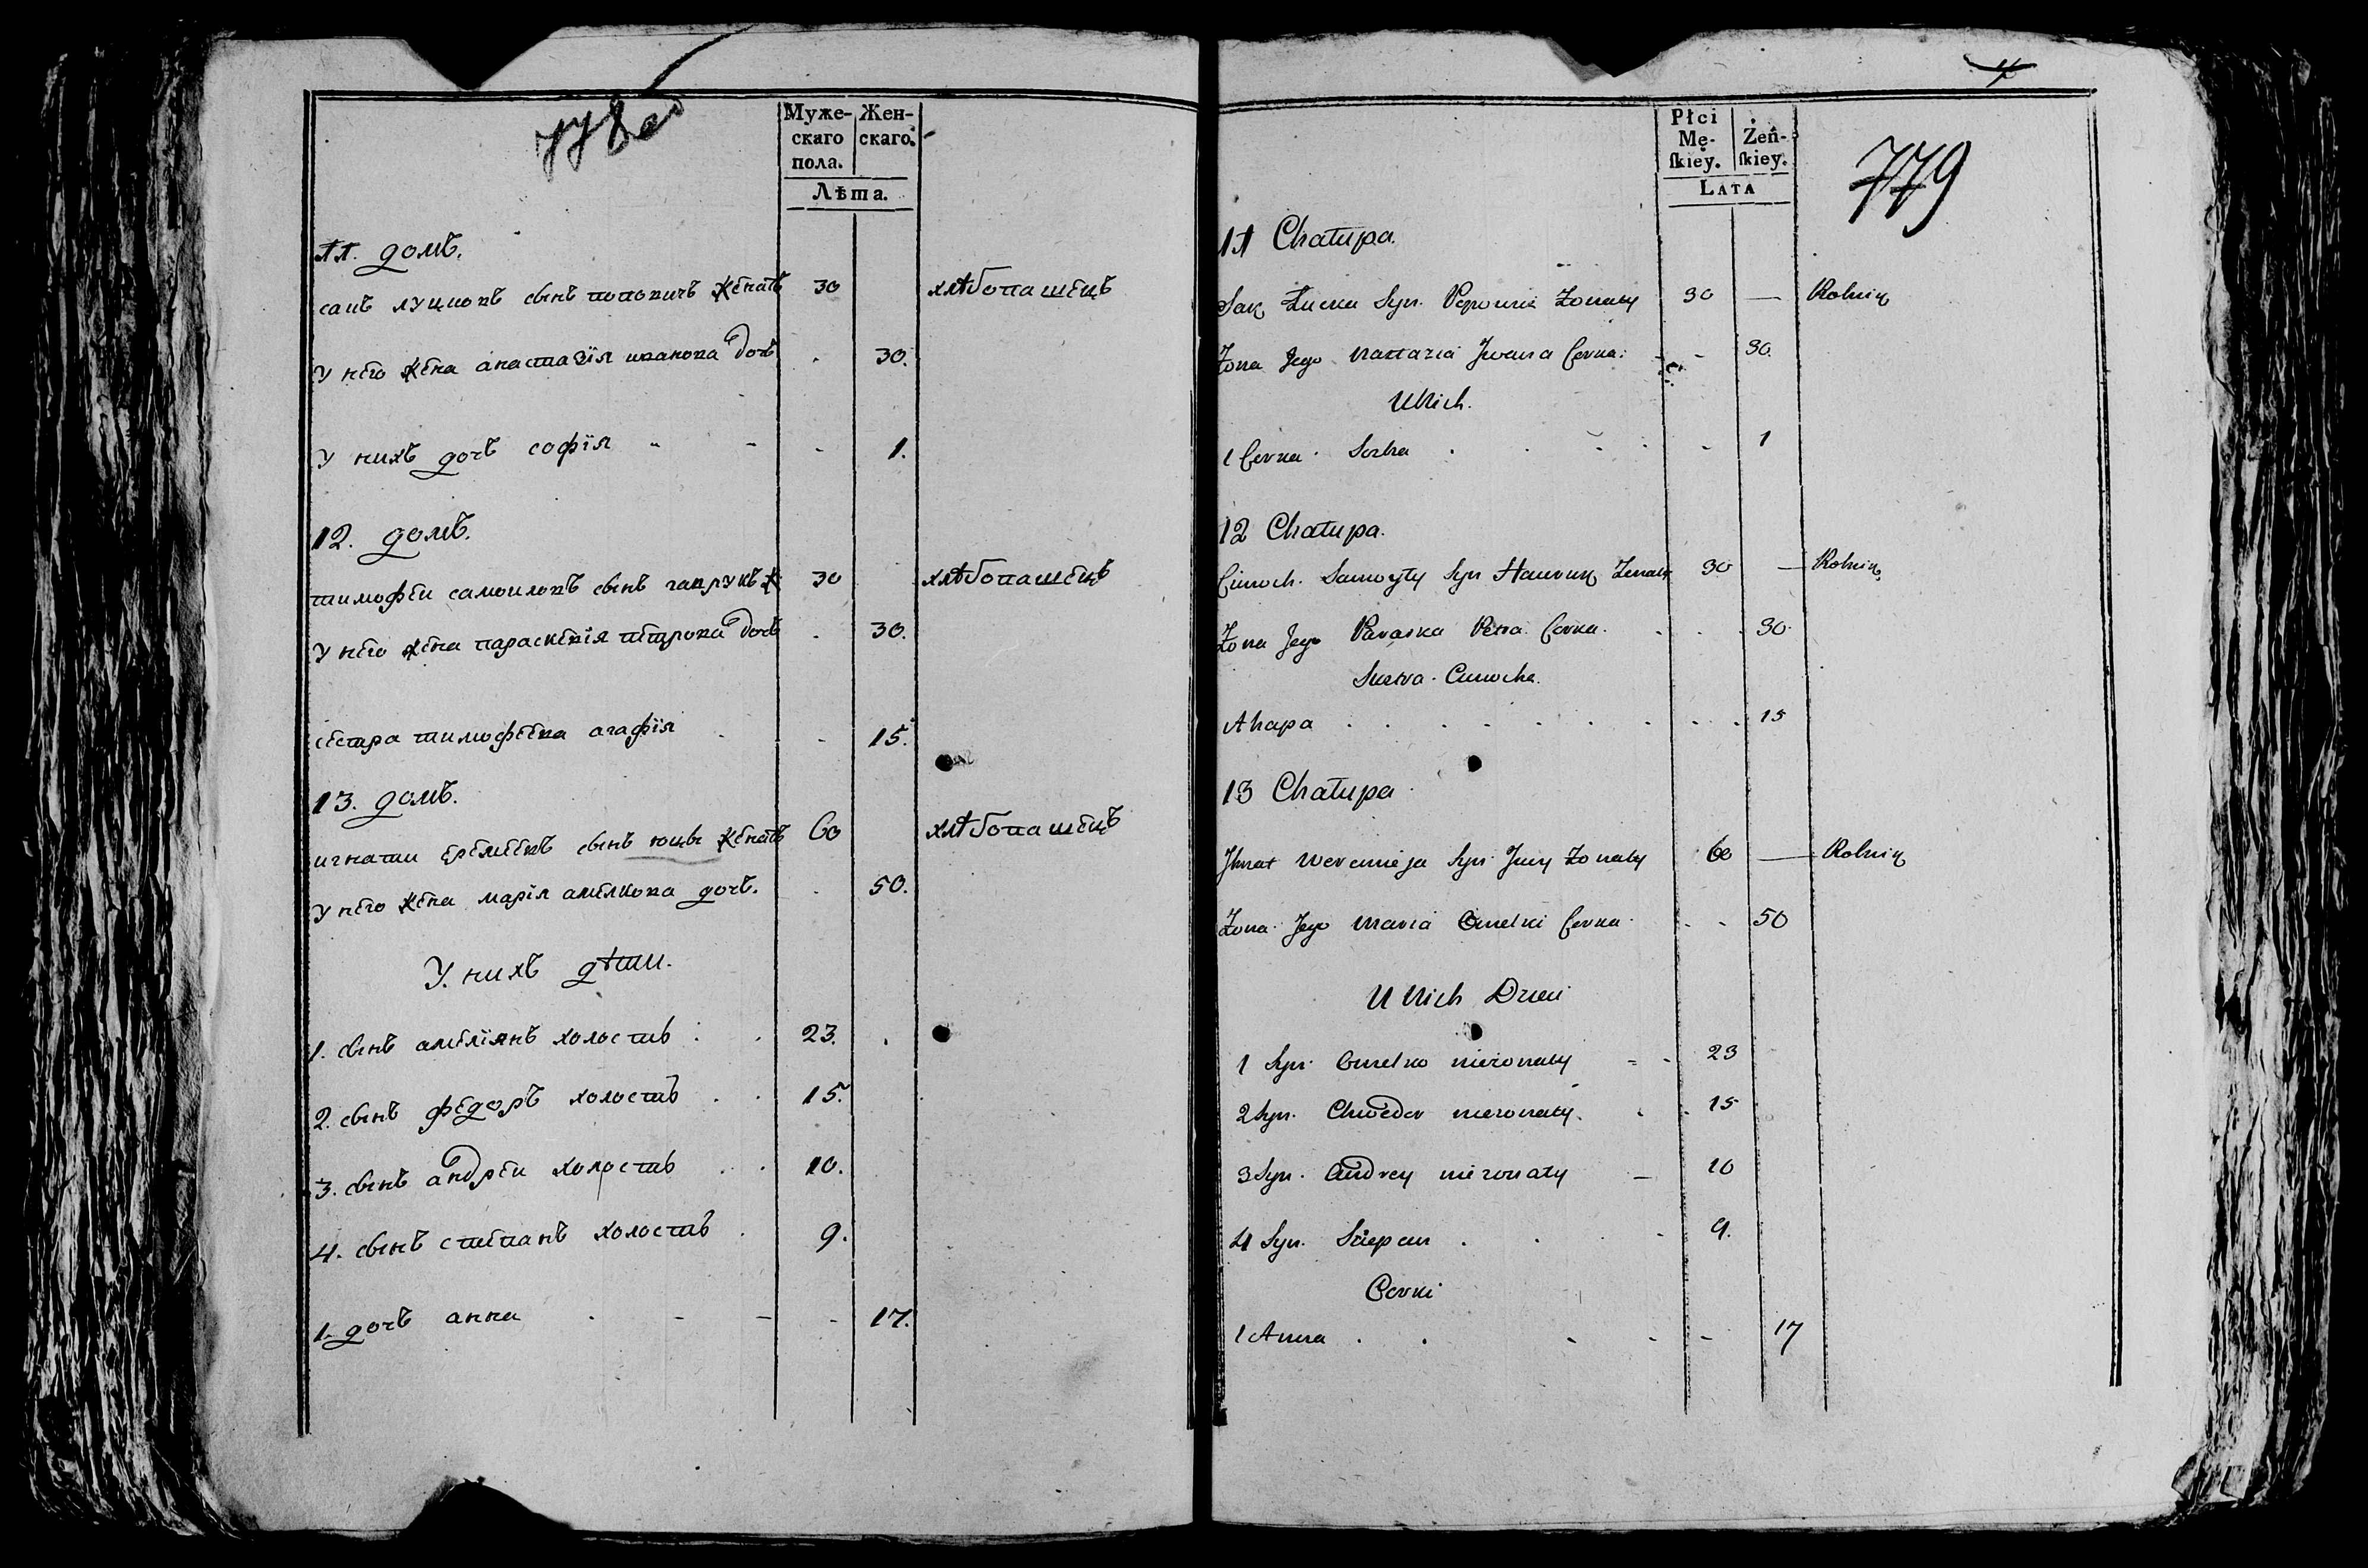 Муже-
скаго
пола.
Жен-
скаго.
Лѣта.
11. домъ.
сакъ луцковъ сынъ поповичъ женатъ 30 хлѣбопашецъ
у него жена анастазїя иванова дочь . 30.
у нихъ дочь софїя - - - 1.
12. домъ.
тимофеи самоиловъ сынъ гаврукъ ж 30 хлѣбопашецъ
у него жена параскевїя петрова дочь . 30.
сестра тимофеева агафїя - - 15.
13. домъ.
игнатии еремеевъ сынъ юцы женатъ 60 хлѣбопашецъ
у него жена марїя амелкова дочь. . 50.
У нихъ дѣти.
1. сынъ амелїянъ холостъ . . 23. .
2. сынъ федоръ холостъ . . 15.
3. сынъ андреи холостъ . . 10.
4. сынъ степанъ холостъ . 9.
1. дочь анна . - - - 17.
4
Płci
Mę-
ſkiey.
Żeń-
ſkiey.
LATA
779
11 Chałupa.
Sak Łucka Syn Popowicz Żonaty 30 — Rolnik
Żona Jego Nastazia Jwana Corka. - - 30.
U Nich.
1 Corka. Sofia . . - - - 1
12 Chałupa.
Cimoch. Samoyły Syn Hawruk Żonaty 30 — Rolnik
Żona Jego Paraska Petra Corka. . . . 30.
Siostra Cimocha.
Ahapa . . . . . . . . . 15
13 Chałupa
Jhnat Weremieja Syn Jucy Żonaty 60 — Rolnik
Żona Jego Maria Omelki Corka. - - 50
U Nich Dzieci
1 Syn Omelko nieżonaty - - 23
2 Syn. Chwedor nieżonaty. . . 15
3 Syn. Andrey nieżonaty — 10
4 Syn. Sciepan . . . . 9.
Corki
1 Anna . . - - - 17